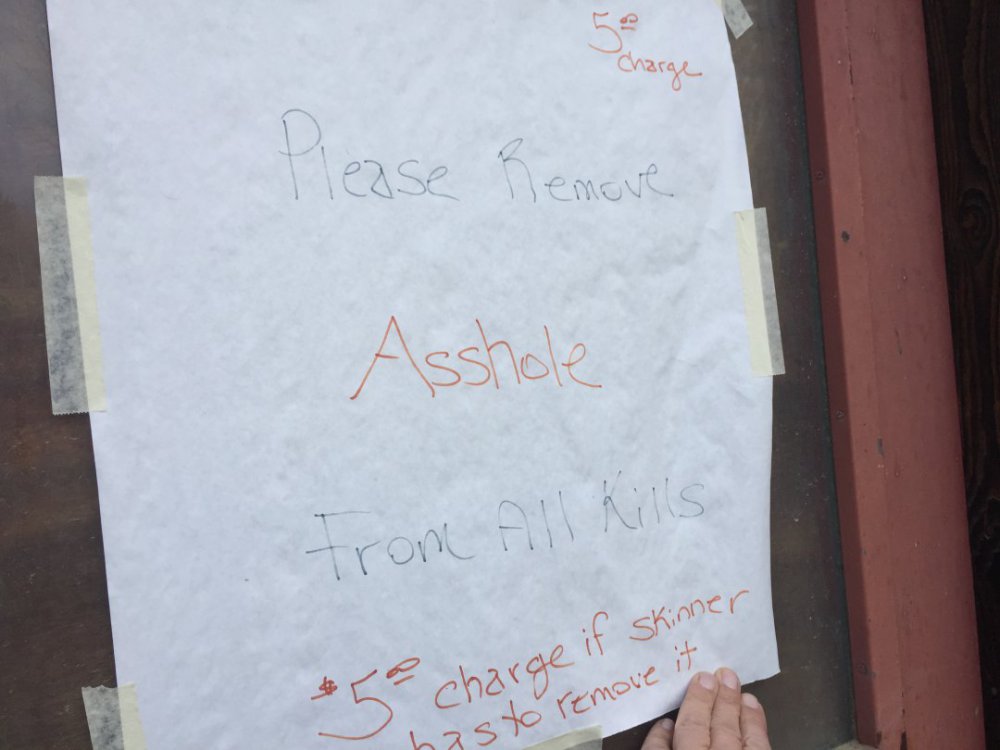 5⁰⁰
charge
Please Remove
Asshole
From All Kills
$5⁰⁰ charge if skinner
has to remove it